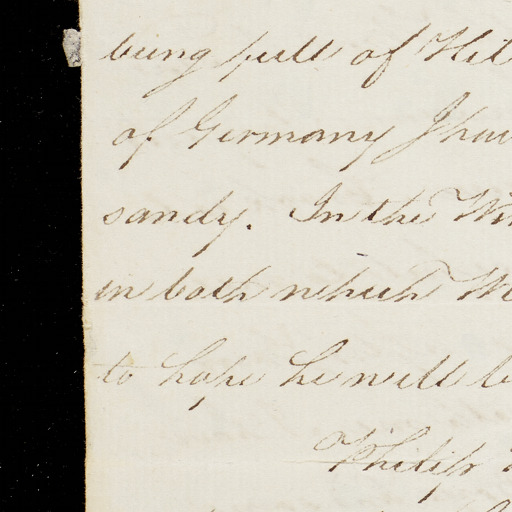 being full of Hil
of Germany I hav
sandy. In the Wi
in both which W
to hope he will b
Philip